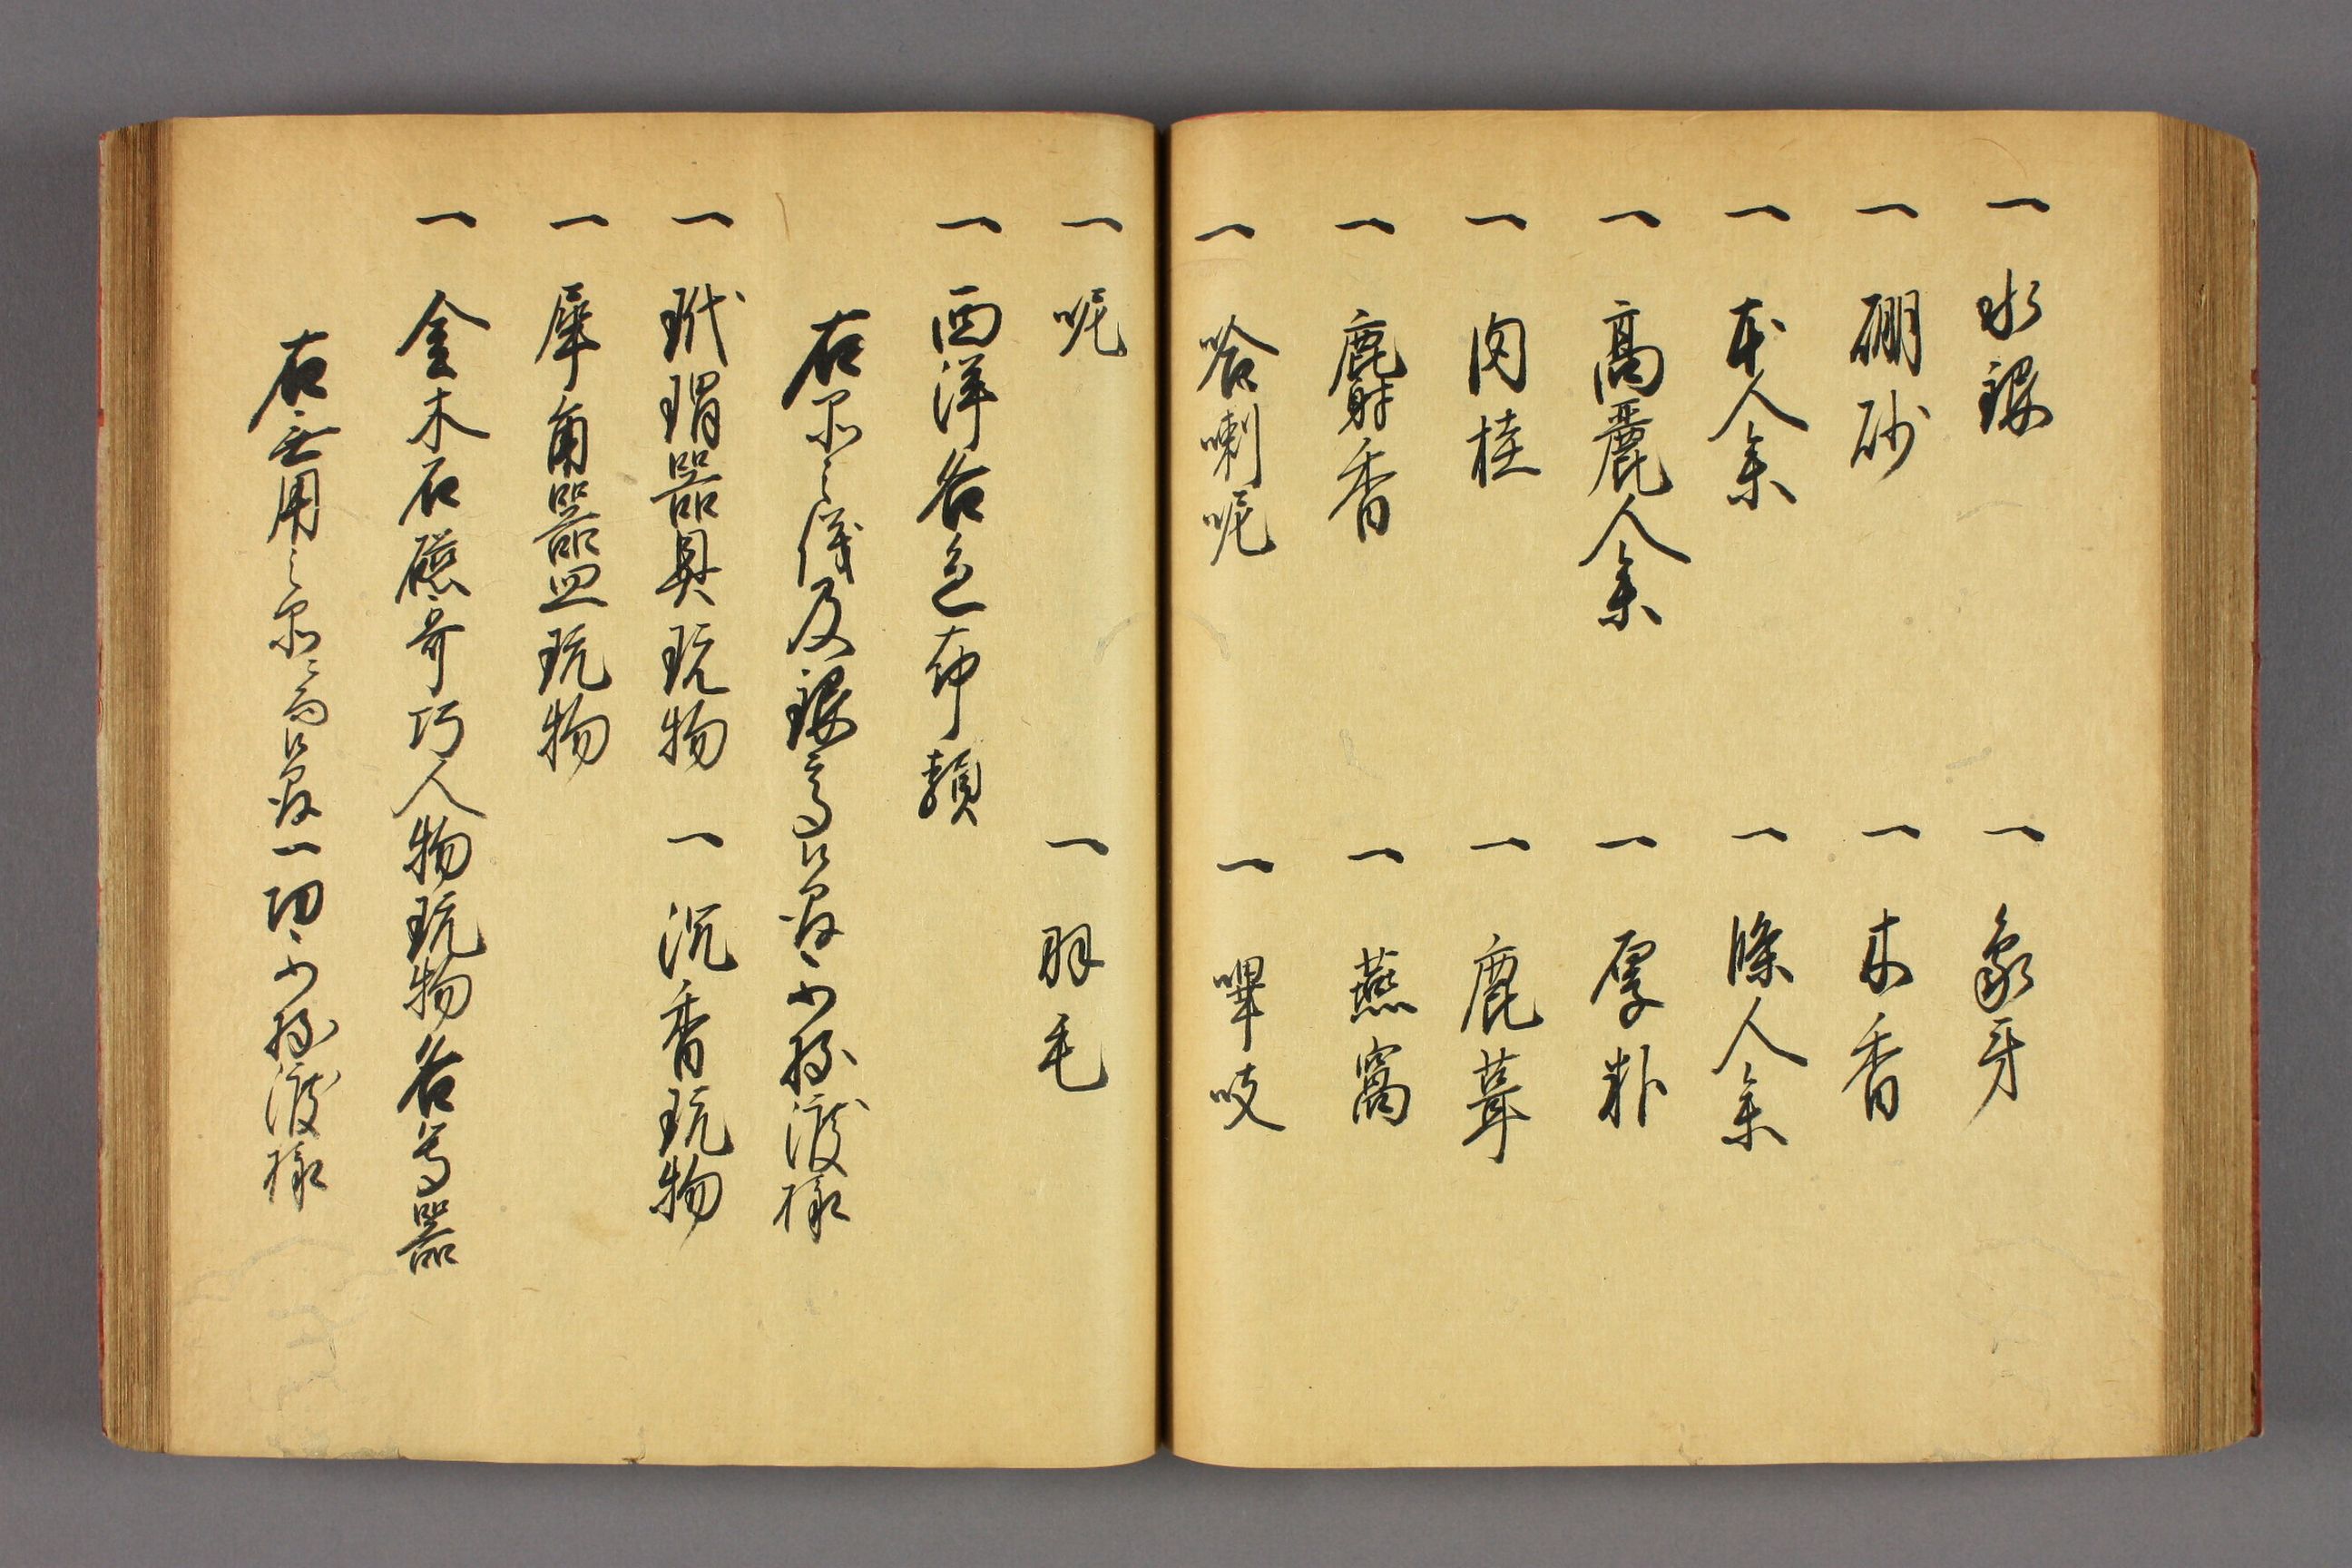 一 水銀 一 象牙
一 硼砂 一 木香
一 本人参 一 條人参
一 高麗人参 一 厚朴
一 肉桂 一 鹿茸
一 麝香 一 燕窩
一 哈喇呢 一 嗶吱
一 呢 一 羽毛
一 西洋各色布類
右品之儀及銀高候間不持渡様
一 玳瑁器具玩物 一 沉香玩物
一 犀角器皿玩物
一 金木石磁奇巧人物玩物各等器
右無用之品ニ而候間一切不持渡様